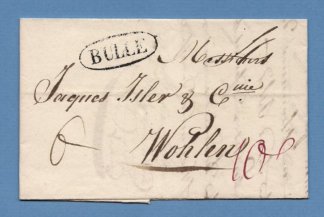 BULLE
Messieurs
Jaques Isler & Cie
Wohlen
6